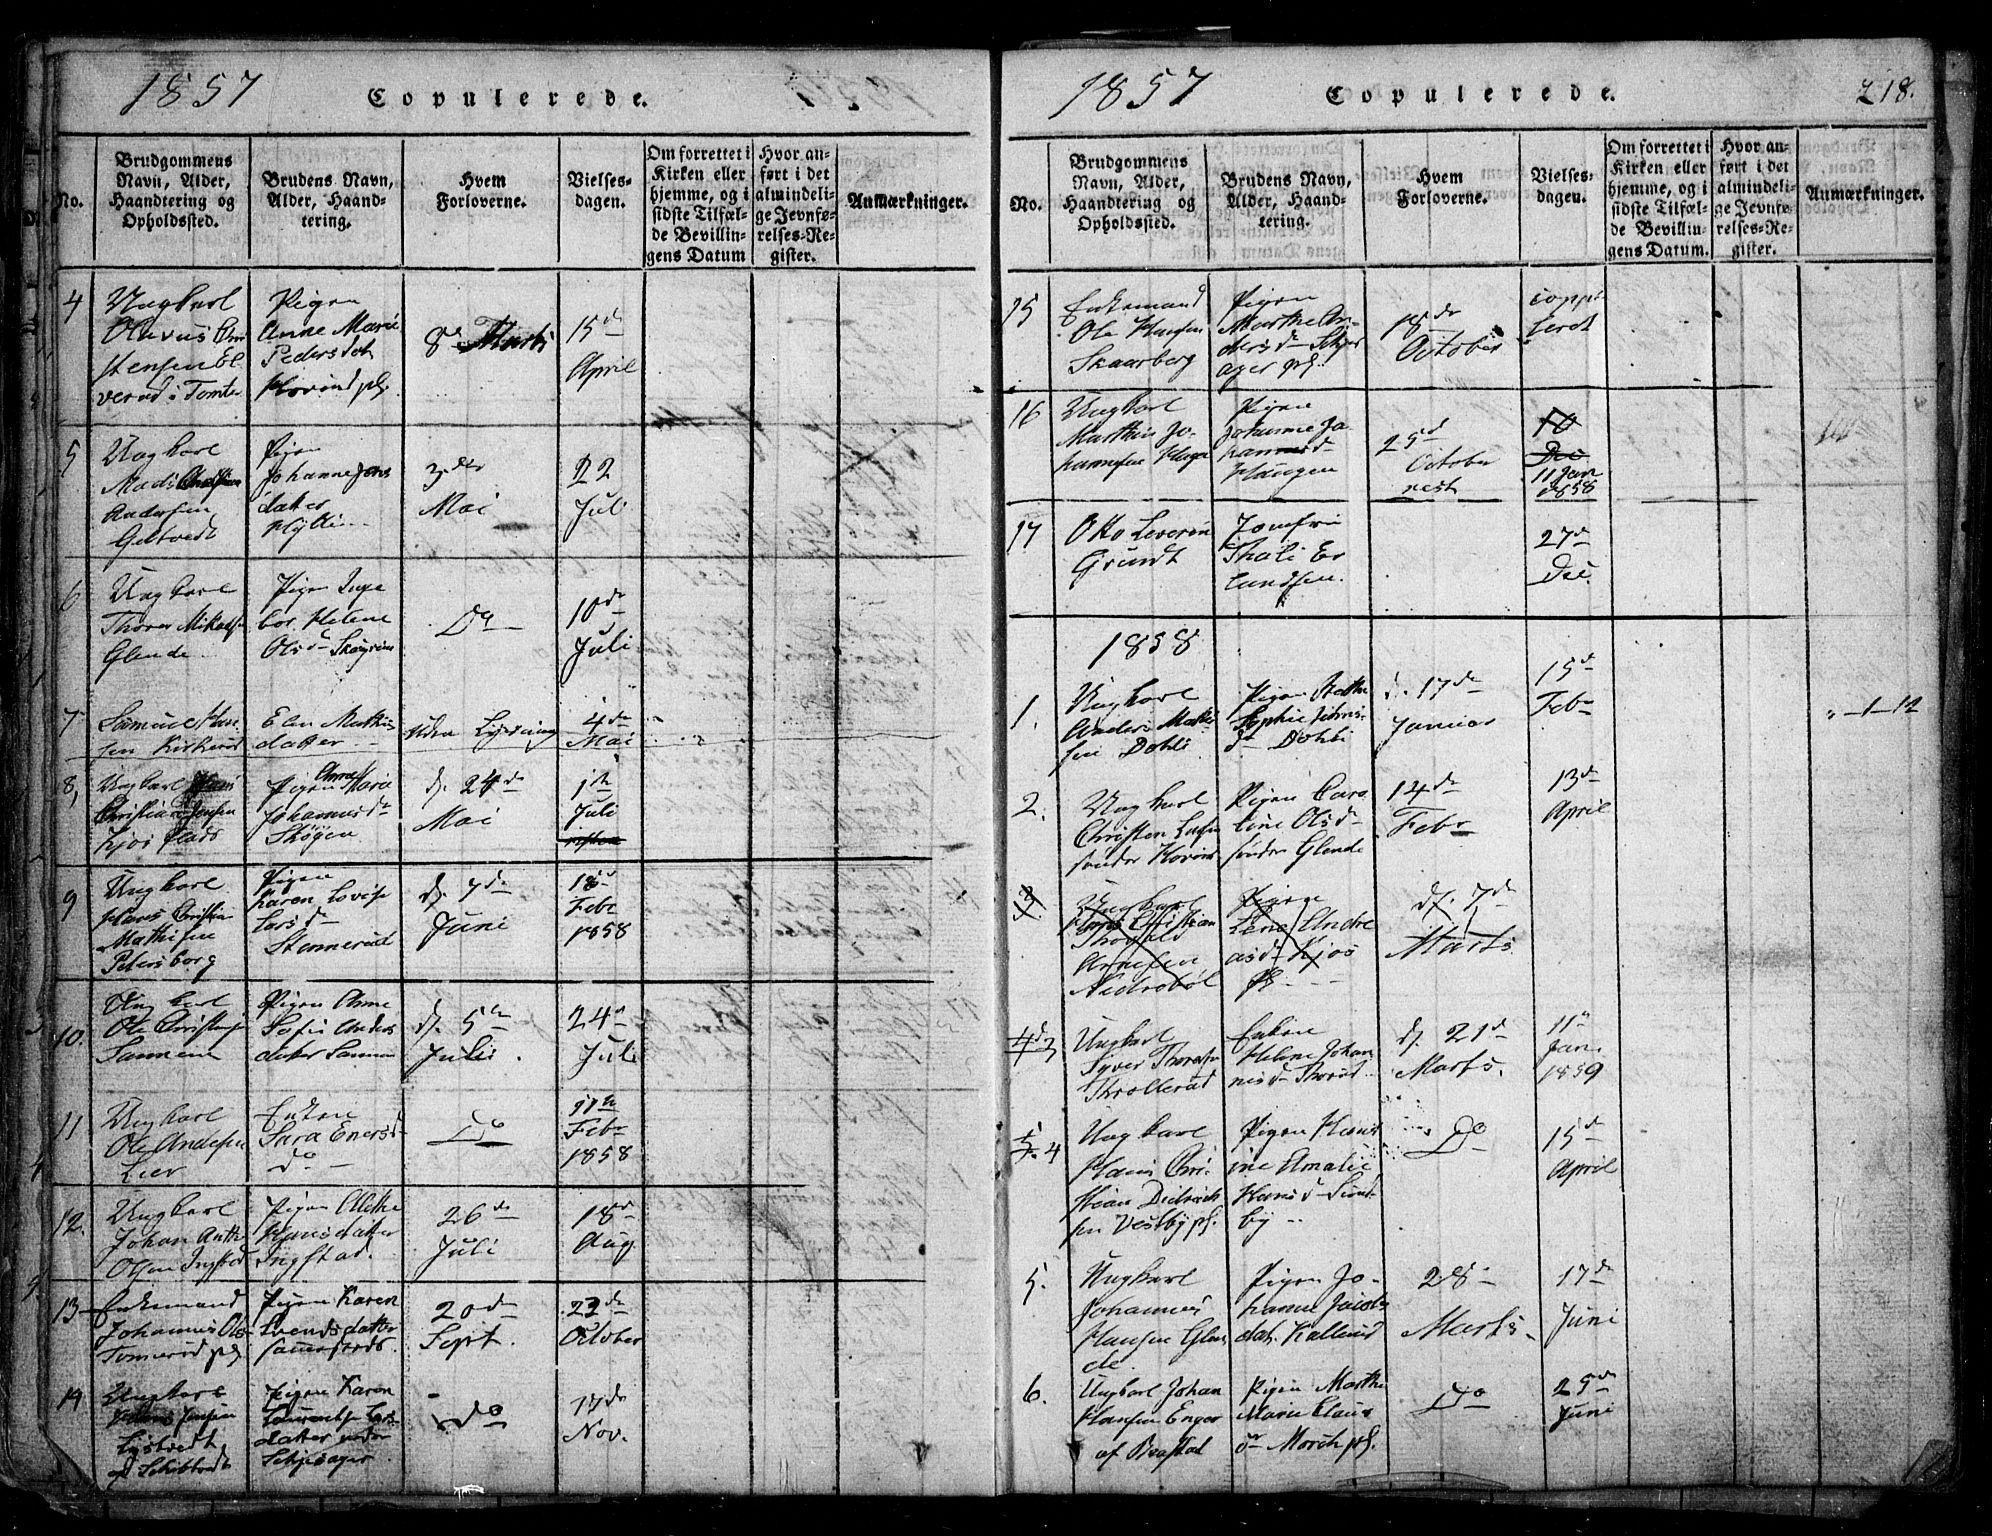 1857
Copulerede.
No.
Brudgommens
Navn, Alder,
Haandtering og
Opholdssted.
Brudens Navn,
Alder, Haand-
tering.
Hvem
Forloverne.
Vielses-
dagen.
Om forrettet i
Kirken eller
hjemme, og i
sidste Tilfæl-
de Bevillin-
gens Datum
Hvor an-
ført i det
almindeli-
ge Jevnfø-
relses-Re-
gister.
Anmærkninger.
4
Ungkarl
Olevus Chri
stensen El
verud i Tomter
Pigen
Anne Marie
Pedersdat
Hovind pl.
8de Marts
15de
April
5
Ungkarl
Mads
Andersen
Geltvedt
Pigen
Johanne Jens
datter
3die
Mai
22
Juli
6
Ungkarl
Thorer Mikelsen
Glende
Pigen Inge
bor. Helene
Olsd
Do
10de
Juli
7
Samuel Han
sen Kirkerud
Elen Mathis
datter
Uden Lysning
4de
Mai
8,
Ungkarl
Christian Jensen
Kjos Plads
Pigen Anne Marie
Johannesd
Skogen
d. 24de
Mai
1ste
Juli
9
Ungkarl
Hans Christian
Mathisen
Petersborg
Pigen
Karen Lovise
Larsd
Stamnerud
d. 7de
Juni
18de
Febr
1858
10.
Ungkarl
Ole Christians
Sannene
Pigen Anne
Sofie Anders
datter Sannen
d. 5te
Juli.
24de
Juli
11
Ungkarl
Ole Andersen
Lier
Enken
Sara Enersd
do
Do
11te
Febr
1858
12.
Ungkarl
Johan Anth
Olsen Ingstad
Pigen Alethe
Hansdatter
Ingstad.
26de
Juli
18de
Aug
13
Enkemand
Johannes Ols
Tomerud pl
Pigen Karen
Svendsdatter
20de
Sept.
22de
October
14
Ungkarl
Hans Jensen
Lystvedt
Pigen Karen
Laurentse Lars
datter under
Schjesager
Do
17de
Nov.
1857
Copulerede.
218.
No.
Brudgommens
Navn, Alder,
Haandtering og
Opholdssted.
Brudens Navn,
Alder, Haand-
tering.
Hvem
Forloverne.
Vielses-
dagen.
Om forrettet i
Kirken eller
hjemme, og i
sidste Tilfæl-
de Bevillin-
gens Datum.
Hvor an-
ført i det
almindeli-
ge Jevnfø-
relses-Re-
gister.
Anmærkninger.
15
Enkemand
Ole Hansen
Skaarberg
Pigen
Marthe An-
dersd Skjes
ager pl.
18de
October
16
Ungkarl
Marthin Jo-
hannesen Haga
Pigen
Johanne Jo
hannesd
Haugen
25d
October
10
Dec
11 Jan
1858
17
Otto Severin
Grundt
Jomfru
Thali Er
landsen.
27de
Dec.
1858
1.
Ungkarl
Anders Mathi
sen Dohli
Pigen Anthe
Sophie Johns
d Dohli
d. 17de
Januar
15de
Febr
2.
Ungkarl
Christen Larsen
sønder Hovind
Pigen Caro
line Olsd
sønder Glende
14de
Febr
13de
April
3.
Ungkarl
Hans Christian
Thorvald
Arnesen
Nedrebøl
Pigen
Lena Andre
asd Kjos
Pl
d. 7de
Marts
4 3
Ungkarl
Syver Thoresen
Throllerud
Enken
Helene Johan
nesd Thorud
d. 21de
Marts.
11te
Jan.
1859
5. 4
Ungkarl
Hans Chri-
stian Diderich
sen Vestby pl.
Pigen Hans
ine Amalie
Hansd Sund-
by
Do
15de
April
5.
Ungkarl
Johannes
Hansen Glen
de
Pigen Jo-
hanne Jacobs
dat. Kallerud
28
Marts
17de
Juni
6.
Ungkarl Johan
Hansen Enger
af Brastad
Pigen Marthe
Marie Claus
dr Morch pl.
Do
25de
Juni